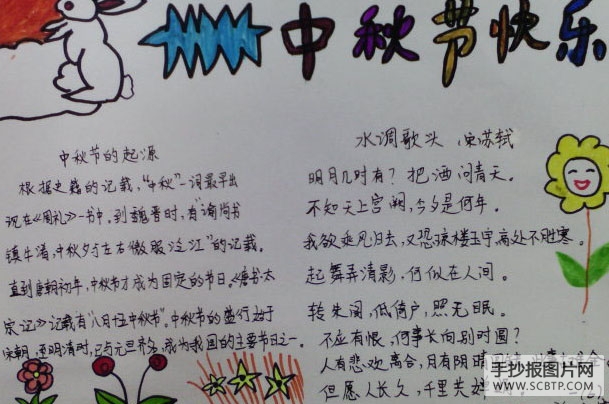 中秋节快乐
中秋节的起源
根据史籍的记载,"中秋"一词最早出
现在《周礼》一书中。到魏晋时,有"谕尚书
镇牛渚,中秋夕与左右微服泛江"的记载。
直到唐朝初年,中秋节才成为固定的节日。《唐书·太
宗记》记载有"八月十五中秋节"。中秋节的盛行始于
宋朝,至明清时,已与元旦齐名,成为我国的主要节日之一。
水调歌头 宋苏轼
明月几时有?把酒问青天。
不知天上宫阙,今夕是何年。
我欲乘风归去,又恐琼楼玉宇,高处不胜寒。
起舞弄清影,何似在人间。
转朱阁,低倚户,照无眠。
不应有恨,何事长向别时圆?
人有悲欢离合,月有阴晴
但愿人长久,千里共婵
手抄报图片网
www.SCBTP.COM